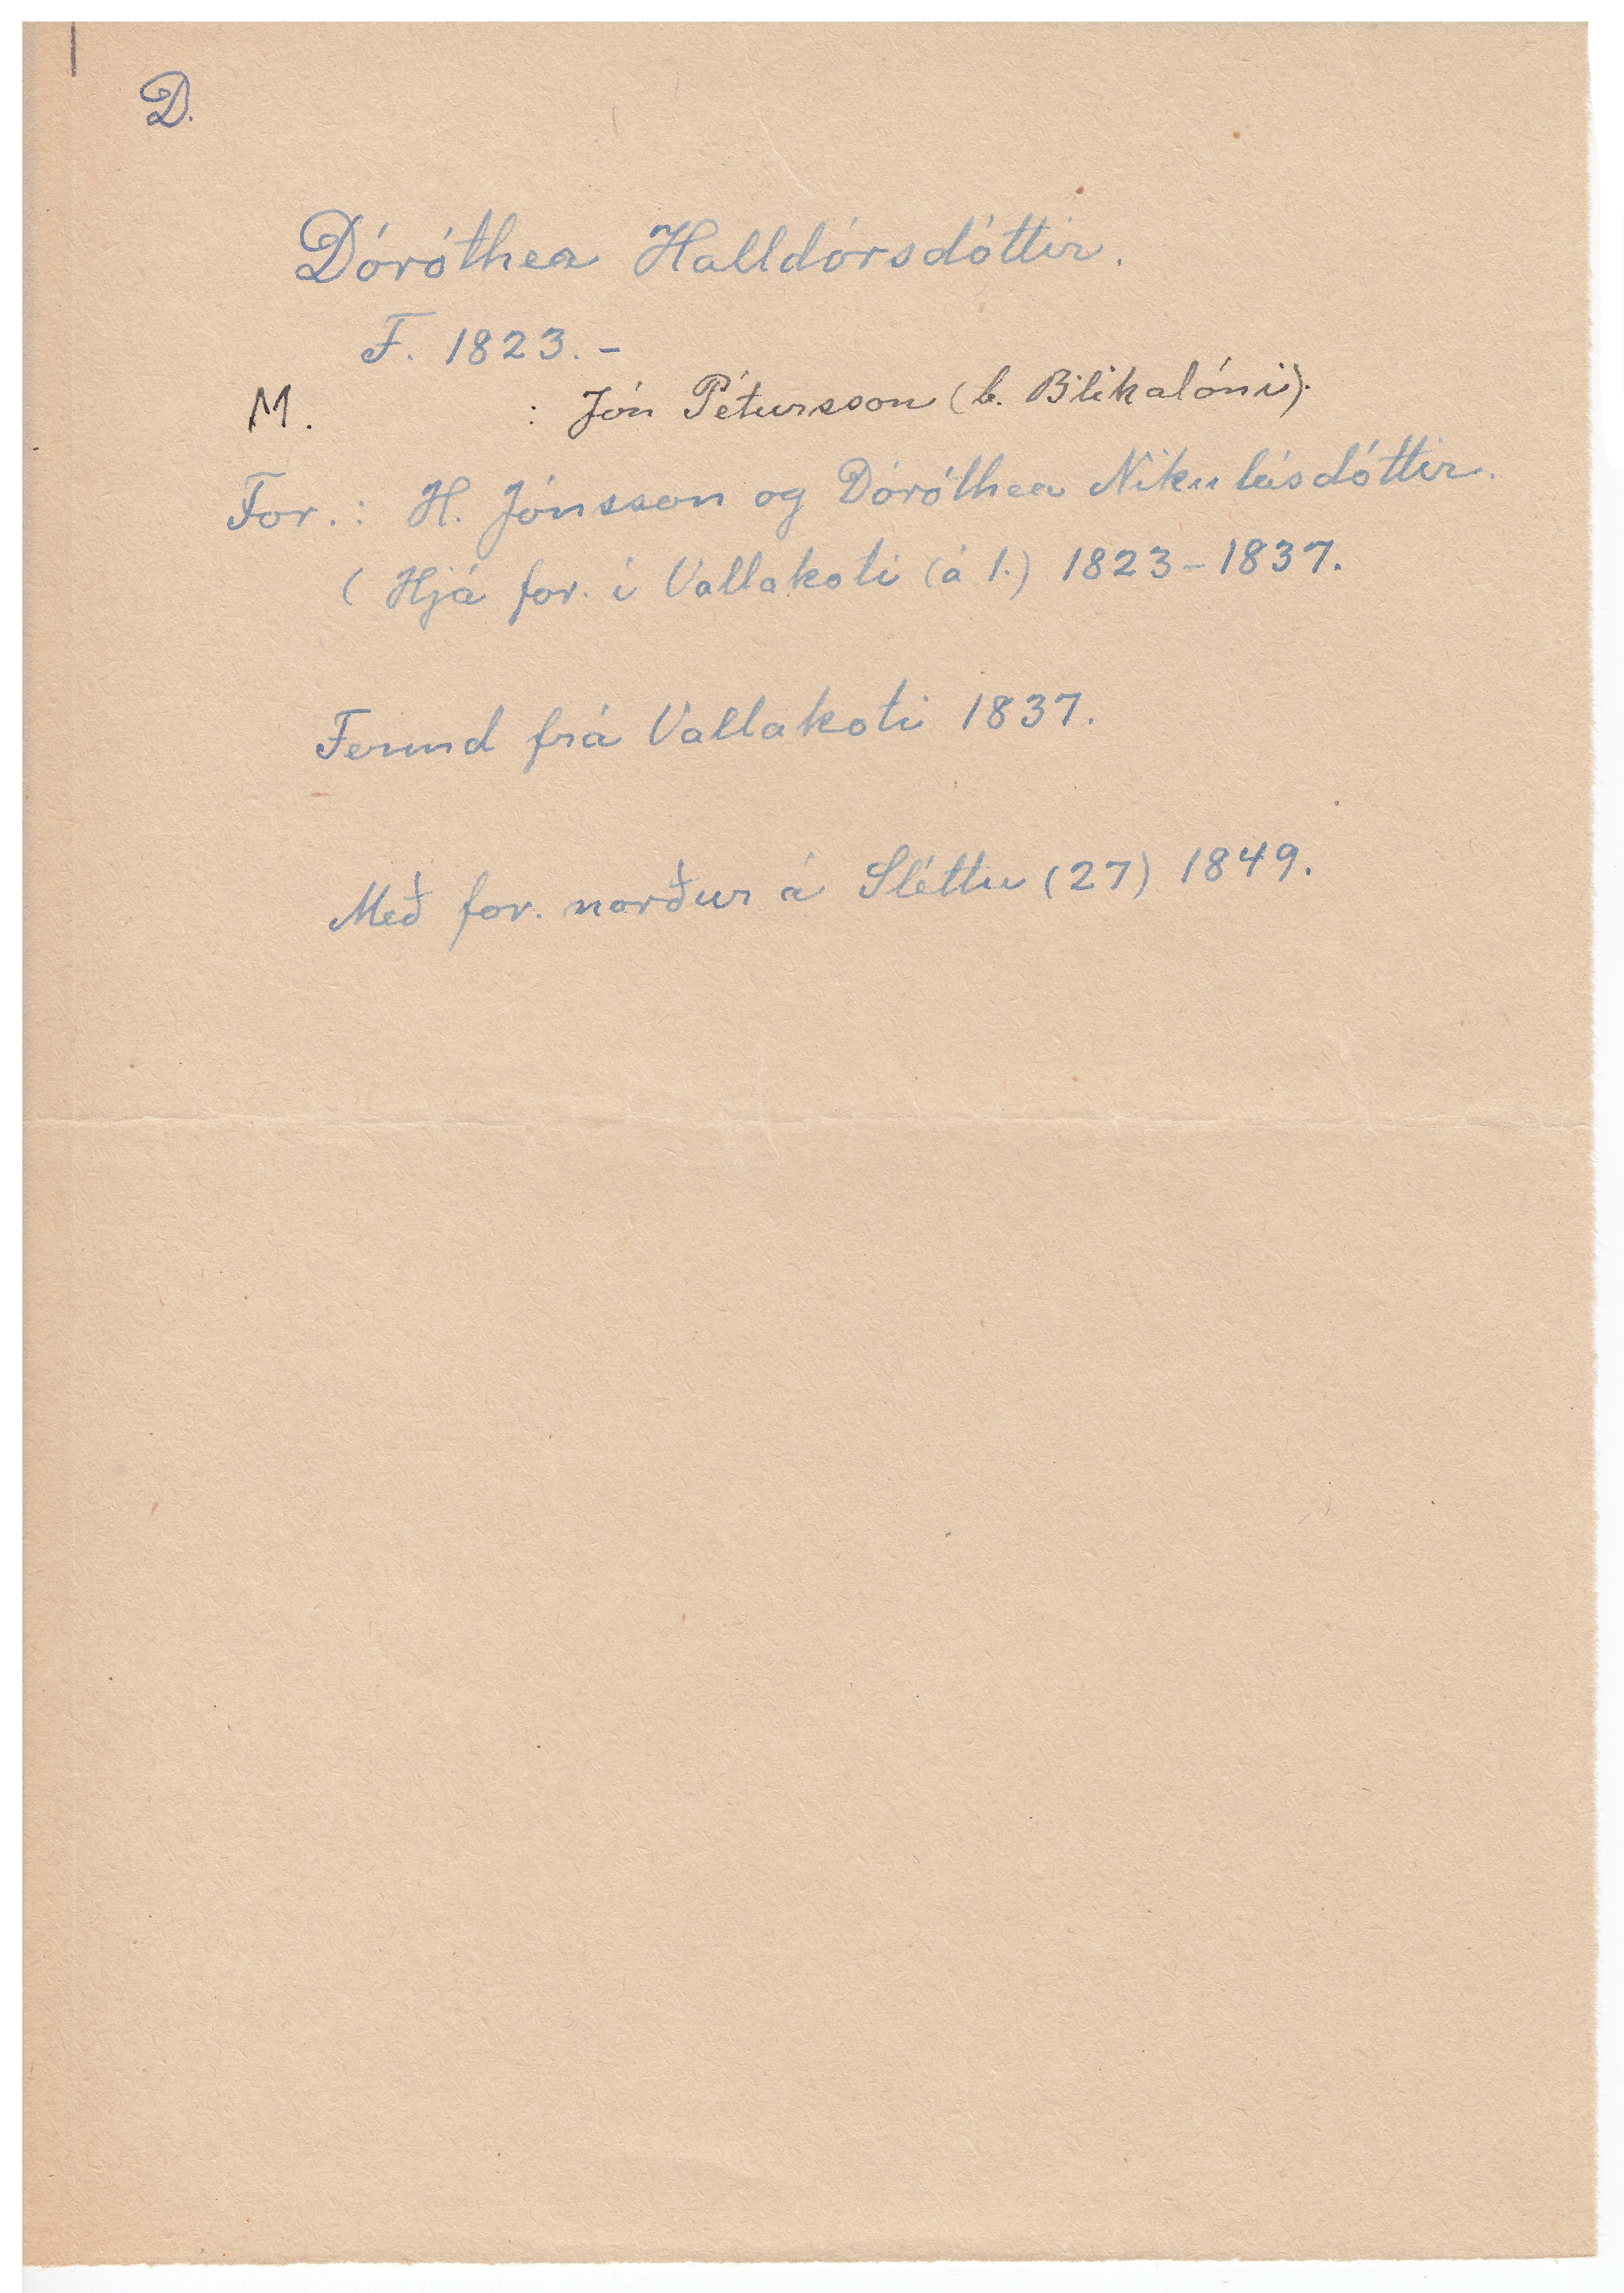 D.
Dóróthea Halldórsdóttir.
F. 1823. -
M. : Jón Pétursson (b. Blikalóni).
For.: H. Jónsson og Dóróthea Nikulásdóttir.
( Hjá for. í Vallakoti (á 1.) 1823-1837.
Fermd frá Vallakoti 1837.
Með for. norður á Sléttu (27) 1849.